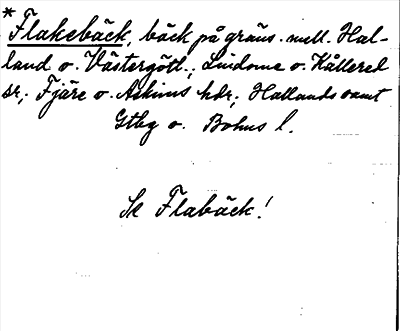 * Flakebäck, bäck på gräns. mell. Hal-
land o. Västergötl.; Lindome o. Kållered
sr; Fjäre o. Askims hdr; Hallands samt
Gtbg o. Bohus l.
Se Flabäck!